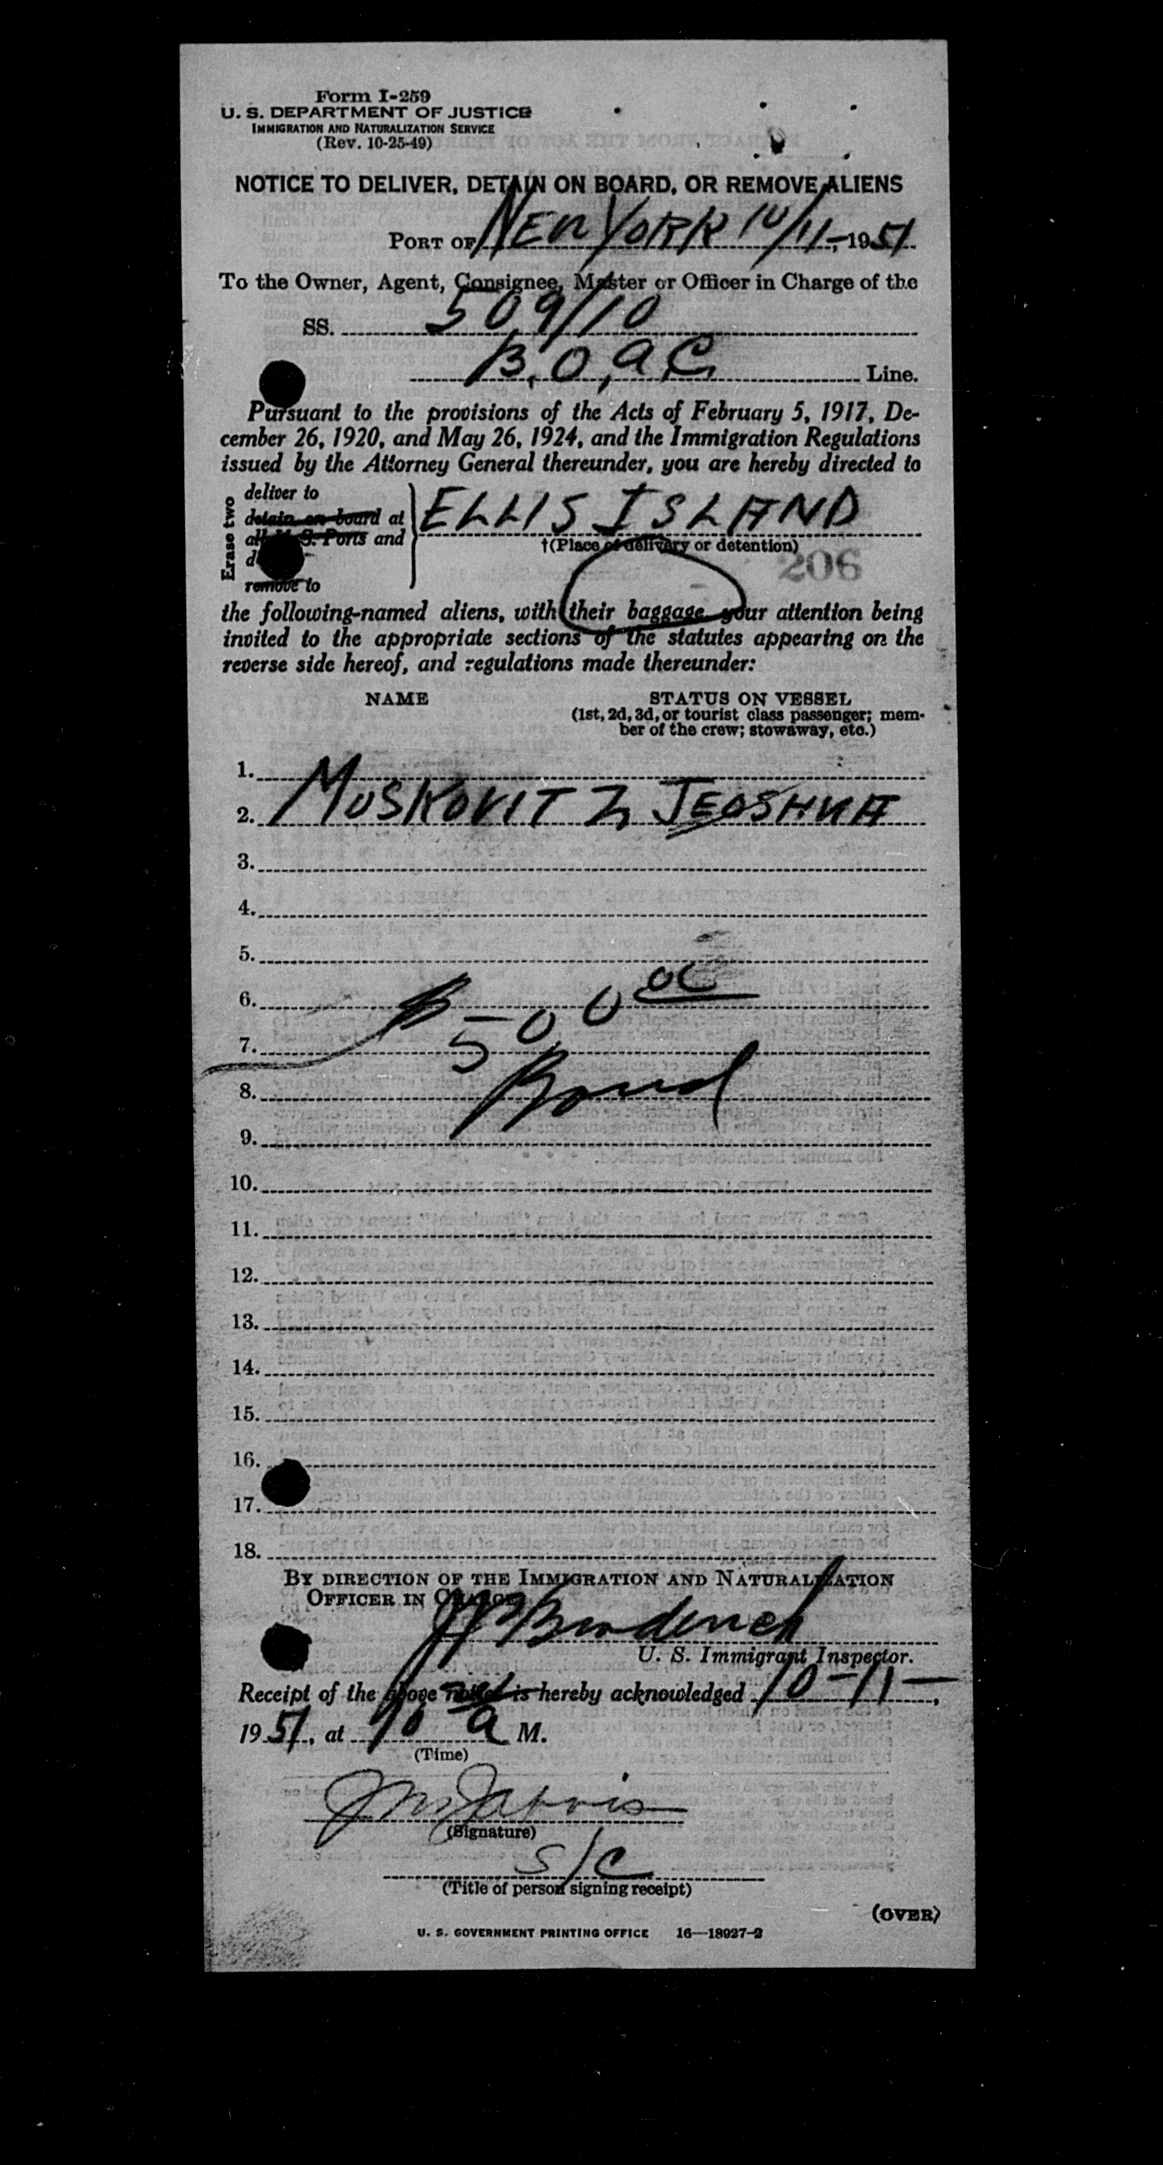 Form I-259
U. S. DEPARTMENT OF JUSTICE
IMMIGRATION AND NATURALIZATION SERVICE
(Rev. 10-25-49)
NOTICE TO DELIVER, DETAIN ON BOARD, OR REMOVE ALIENS
PORT OF NEW YORK 10/11, 1951
To the Owner, Agent, Consignee, Master or Officer in Charge of the
SS. 509/10
B.O.A.C. Line.
Pursuant to the provisions of the Acts of February 5, 1917, De-
cember 26, 1920, and May 26, 1924, and the Immigration Regulations
issued by the Attorney General thereunder, you are hereby directed to
Erase two
deliver to
detain on board at
all U. S. Ports and
remove to
ELLIS ISLAND
†(Place of delivery or detention)
206
the following-named aliens, with their baggage, your attention being
invited to the appropriate sections of the statutes appearing on the
reverse side hereof, and regulations made thereunder:
NAME STATUS ON VESSEL
(1st, 2d, 3d, or tourist class passenger; mem-
ber of the crew; stowaway, etc.)
1.
2. MUSKOVITZ, JEOSHUA
3.
4.
5.
6. $500 00
7.
8. Bond
9.
10.
11.
12.
13.
14.
15.
16.
17.
18.
BY DIRECTION OF THE IMMIGRATION AND NATURALIZATION
OFFICER IN CHARGE
U. S. Immigrant Inspector.
Receipt of the above notice is hereby acknowledged 10-11-,
1951, at 10 a M.
(Time)
J M Jarvis
(Signature)
S/C
(Title of person signing receipt)
(OVER)
U. S. GOVERNMENT PRINTING OFFICE 16—18927-2